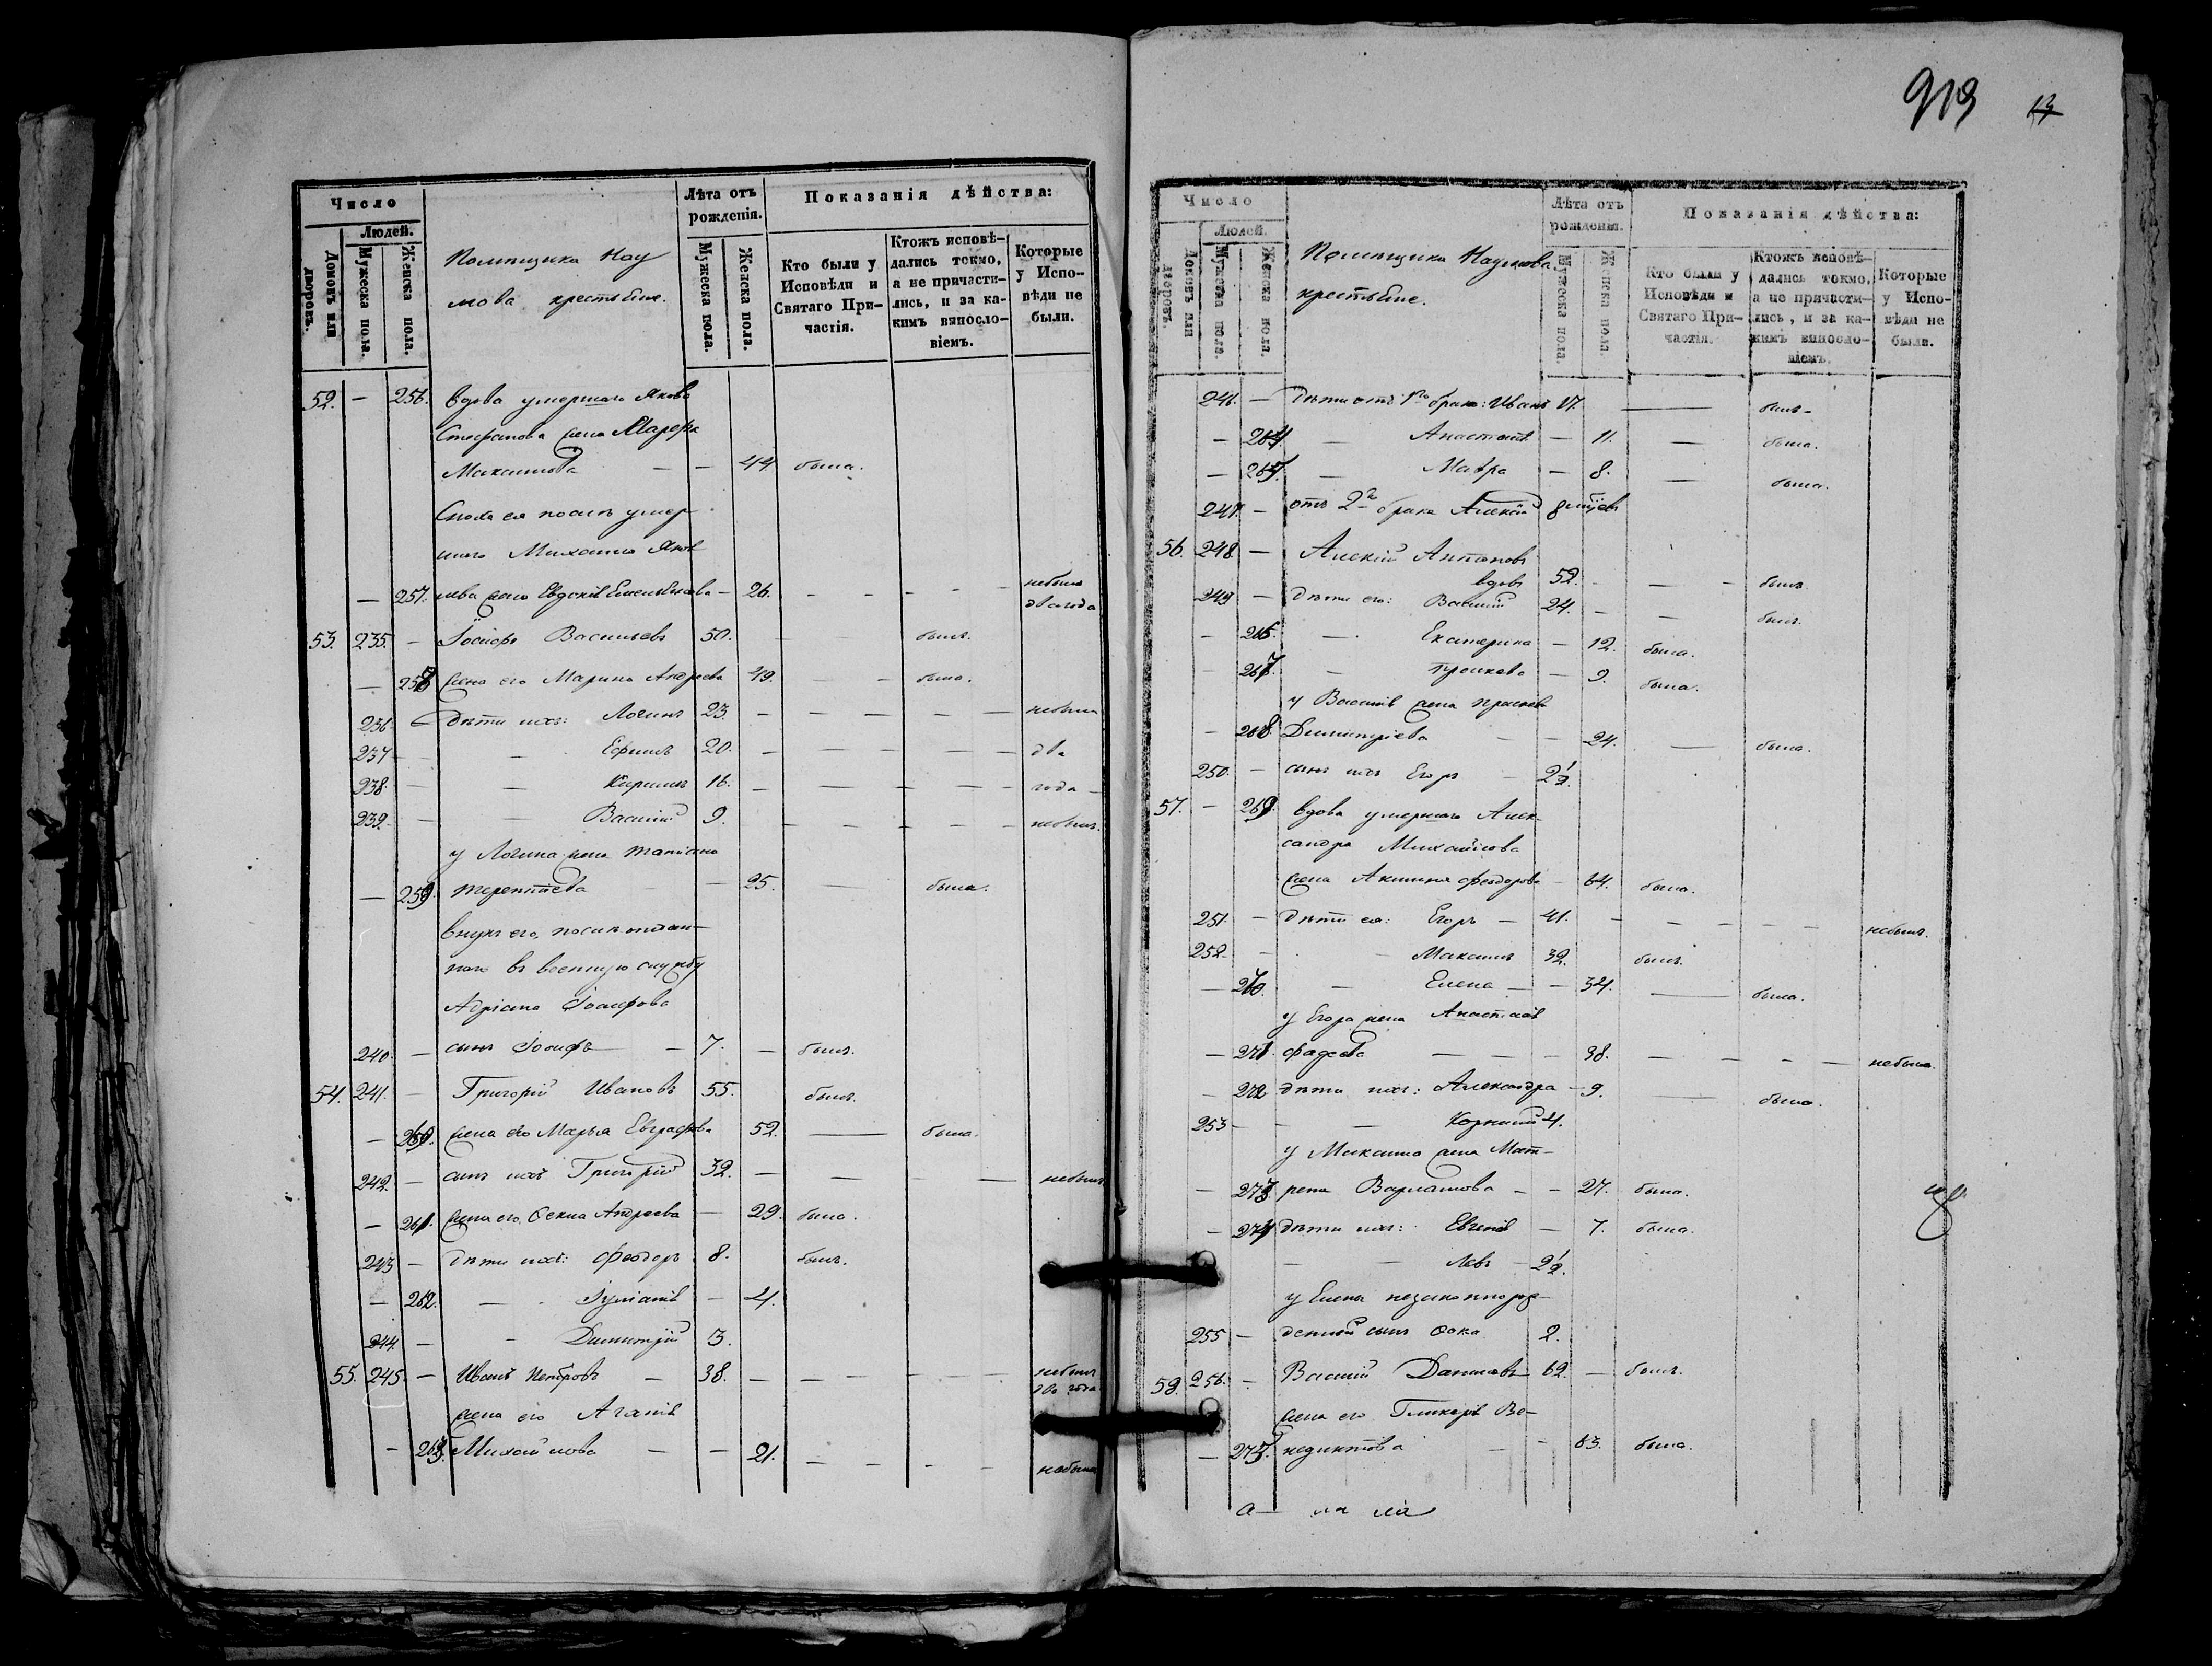 919 13
Число
Людей.
Домовъ или дворовъ.
Мужеска пола.
Женска пола.
Помѣщика Нау
мова крестьяне.
Лѣта отъ
рожденія.
Мужеска пола.
Женска пола.
Показанія дѣйства:
Кто были у
Исповѣди и
Святаго При-
частія.
Ктожъ исповѣ-
дались токмо,
а не причасти-
лись, и за ка-
кимъ винносло-
віемъ.
Которые
у Испо-
вѣди не
были.
52. — 256. Вдова умершаго Якова
Стефанова жена Марѳа
Максимова — — 44 была.
Сноха ея послѣ умер
шаго Михаила Яков
— 257. лева жена Евдокія Емельянова — 26. — — — — небыла два года
53. 235. — Іосифъ Васильевъ 50. — — былъ.
— 258 жена его Марина Андреева 49. — — была.
236. — дѣти ихъ: Логинъ 23. — — — — — небыли
237 — — Ефимъ 20. — — — — — два
238. — — Кирилъ 16. — — — — — года —
239. — — Василій 9. — — — — — небылъ.
у Логина жена Татіана
— 259. Терентьева — — 25. — была.
Внукъ его, послѣ отдан
наго въ военную службу
Адріана Іосифова
240. — сынъ Іосифъ — — 7. — былъ.
54. 241. — Григорій Ивановъ 55. былъ.
— 260. жена его Марья Евграфова 52. — была.
242. — сынъ ихъ Григорій 32. — — — — небылъ
— 261. жена его Ѳекла Андреева — 29. была.
243 — дѣти ихъ: Феодоръ 8. былъ.
— 262. — Іуліанія — 4.
244. — — Димитрій 3.
55. 245. — Иванъ Петровъ — 38. — — — — — — небылъ два года
жена его Агафія
— 263. Михайлова — — 21. — — — — небыла
Число
Людей.
Домовъ или дворовъ.
Мужеска пола.
Женска пола.
Помѣщика Наумова
крестьяне.
Лѣта отъ
рожденія.
Мужеска пола.
Женска пола.
Показанія дѣйства:
Кто были у
Исповѣди и
Святаго При-
частія.
Ктожъ исповѣ-
дались токмо,
а не причасти-
лись, и за ка-
кимъ винносло-
віемъ.
Которые
у Испо-
вѣди не
были.
246. — Дѣти отъ 1го брака: Иванъ 17. — былъ —
— 264. — Анастасія — 11. — была.
— 265. — Мавра — 8. — была.
247. — отъ 2го брака Алексій 8
56. 248. — Алексій Антоновъ
вдовъ 52. — — — былъ.
249 — дѣти его: Василій 24. — — былъ.
— 266. — Екатерина — 12. была.
— 267. — — 9. была.
у Василія жена Прасковья
— 268. Димитріева — — 24. — была.
250. — сынъ ихъ Егоръ — 2½.
57. — 269. Вдова умершаго Алек-
сандра Михайлова
жена Акилина Феодорова — 64. была.
251. — дѣти ея: Егоръ — 41. — — — — — небылъ.
252. — — Максимъ 32. былъ.
— 270. — Елена — — 34. — была.
у Егора жена Анастасія
— 271. Фадеева — — — 38. — — — — небыла.
— 272 дѣти ихъ: Александра — 9. — была.
253 — — Корнилій 4.
у Максима жена Мат-
— 273. рена Варламова — — 27. была.
— 274 дѣти ихъ: Евгенія — 7. была.
— — Левъ — 2½.
у Елены незаконнорож-
255 — денный сынъ Ѳока 2.
58. 256. — Василій Даниловъ 62. — былъ.
жена его Гликерія Ве-
— 275. недиктова — — 63. была.